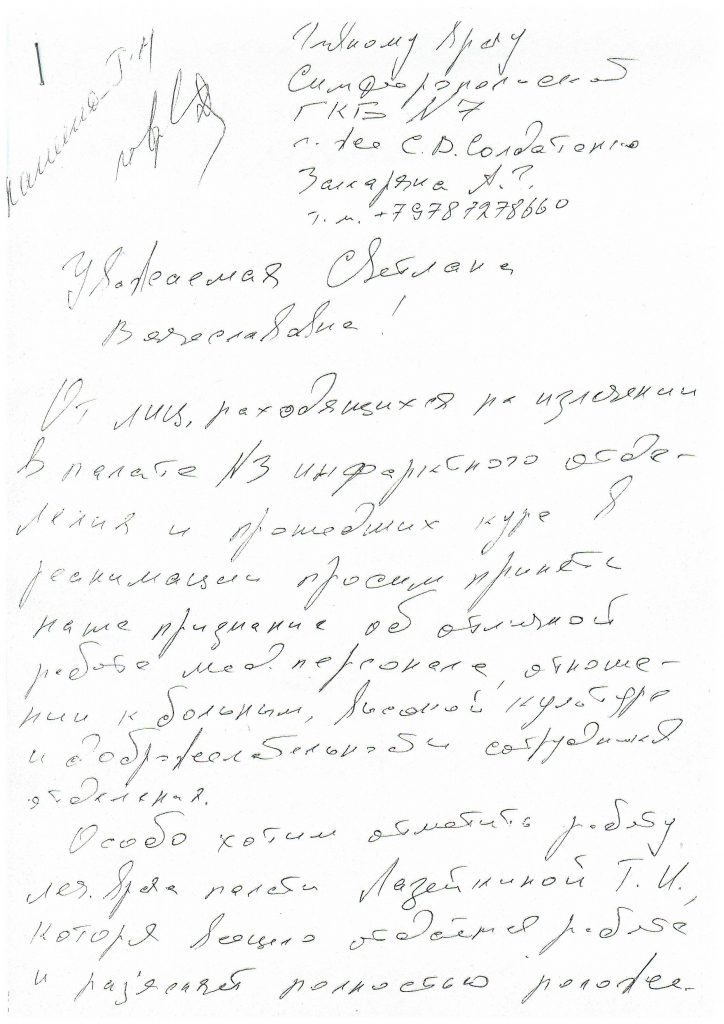 Главному врачу
Симферопольской
ГКБ N7
г-же С.В. Солдатенко
Захаряна А.Г.
т.м. +79787278660
Уважаемая Светлана
Вячеславовна!
От лиц, находящихся на излечении
в палате N3 инфарктного отде-
ления и прошедших курс в
реанимации просим принять
наше признание об отличной
работе мед. персонала, отноше-
нии к больным, высокой культуре
и доброжелательности сотрудников
отделения.
Особо хотим отметить работу
леч. врача палаты Лазейкиной Т.И.,
которая всецело отдаётся работе
и раз'ясняет полностью положе-